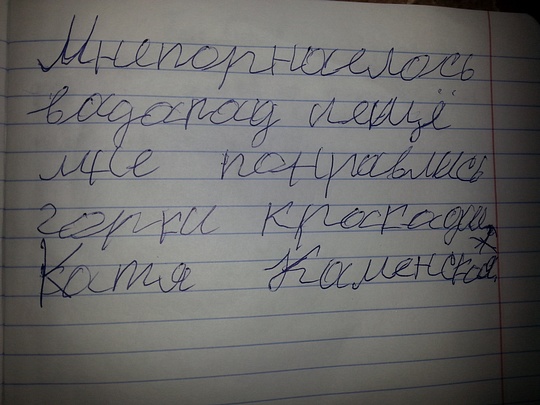 Мнепорнаелось
вадапад иещё
мне понравлись
горки кроскадил
Катя Каменская